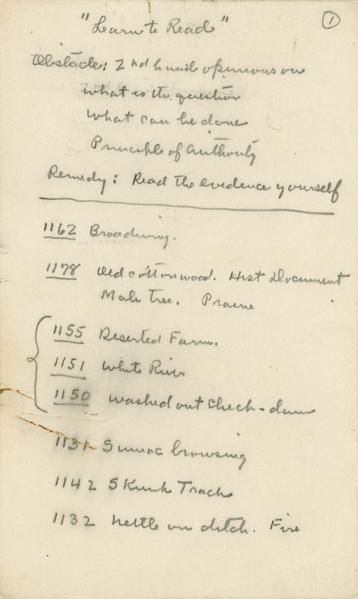 "Learn to Read"
1
Obstacles: 2nd hand opinions on
what is the question
What can be done
Principle of Authority
Remedy: Read the evidence yourself
1162 Broadwing.
1178 Old cottonwood. Hist Document
Male tree. Prairie
1155 Deserted Farm.
1151 White River
1150 Washed out check-dam
1131 Sumac browsing
1142 Skunk Track
1132 Nettle on ditch. Fire